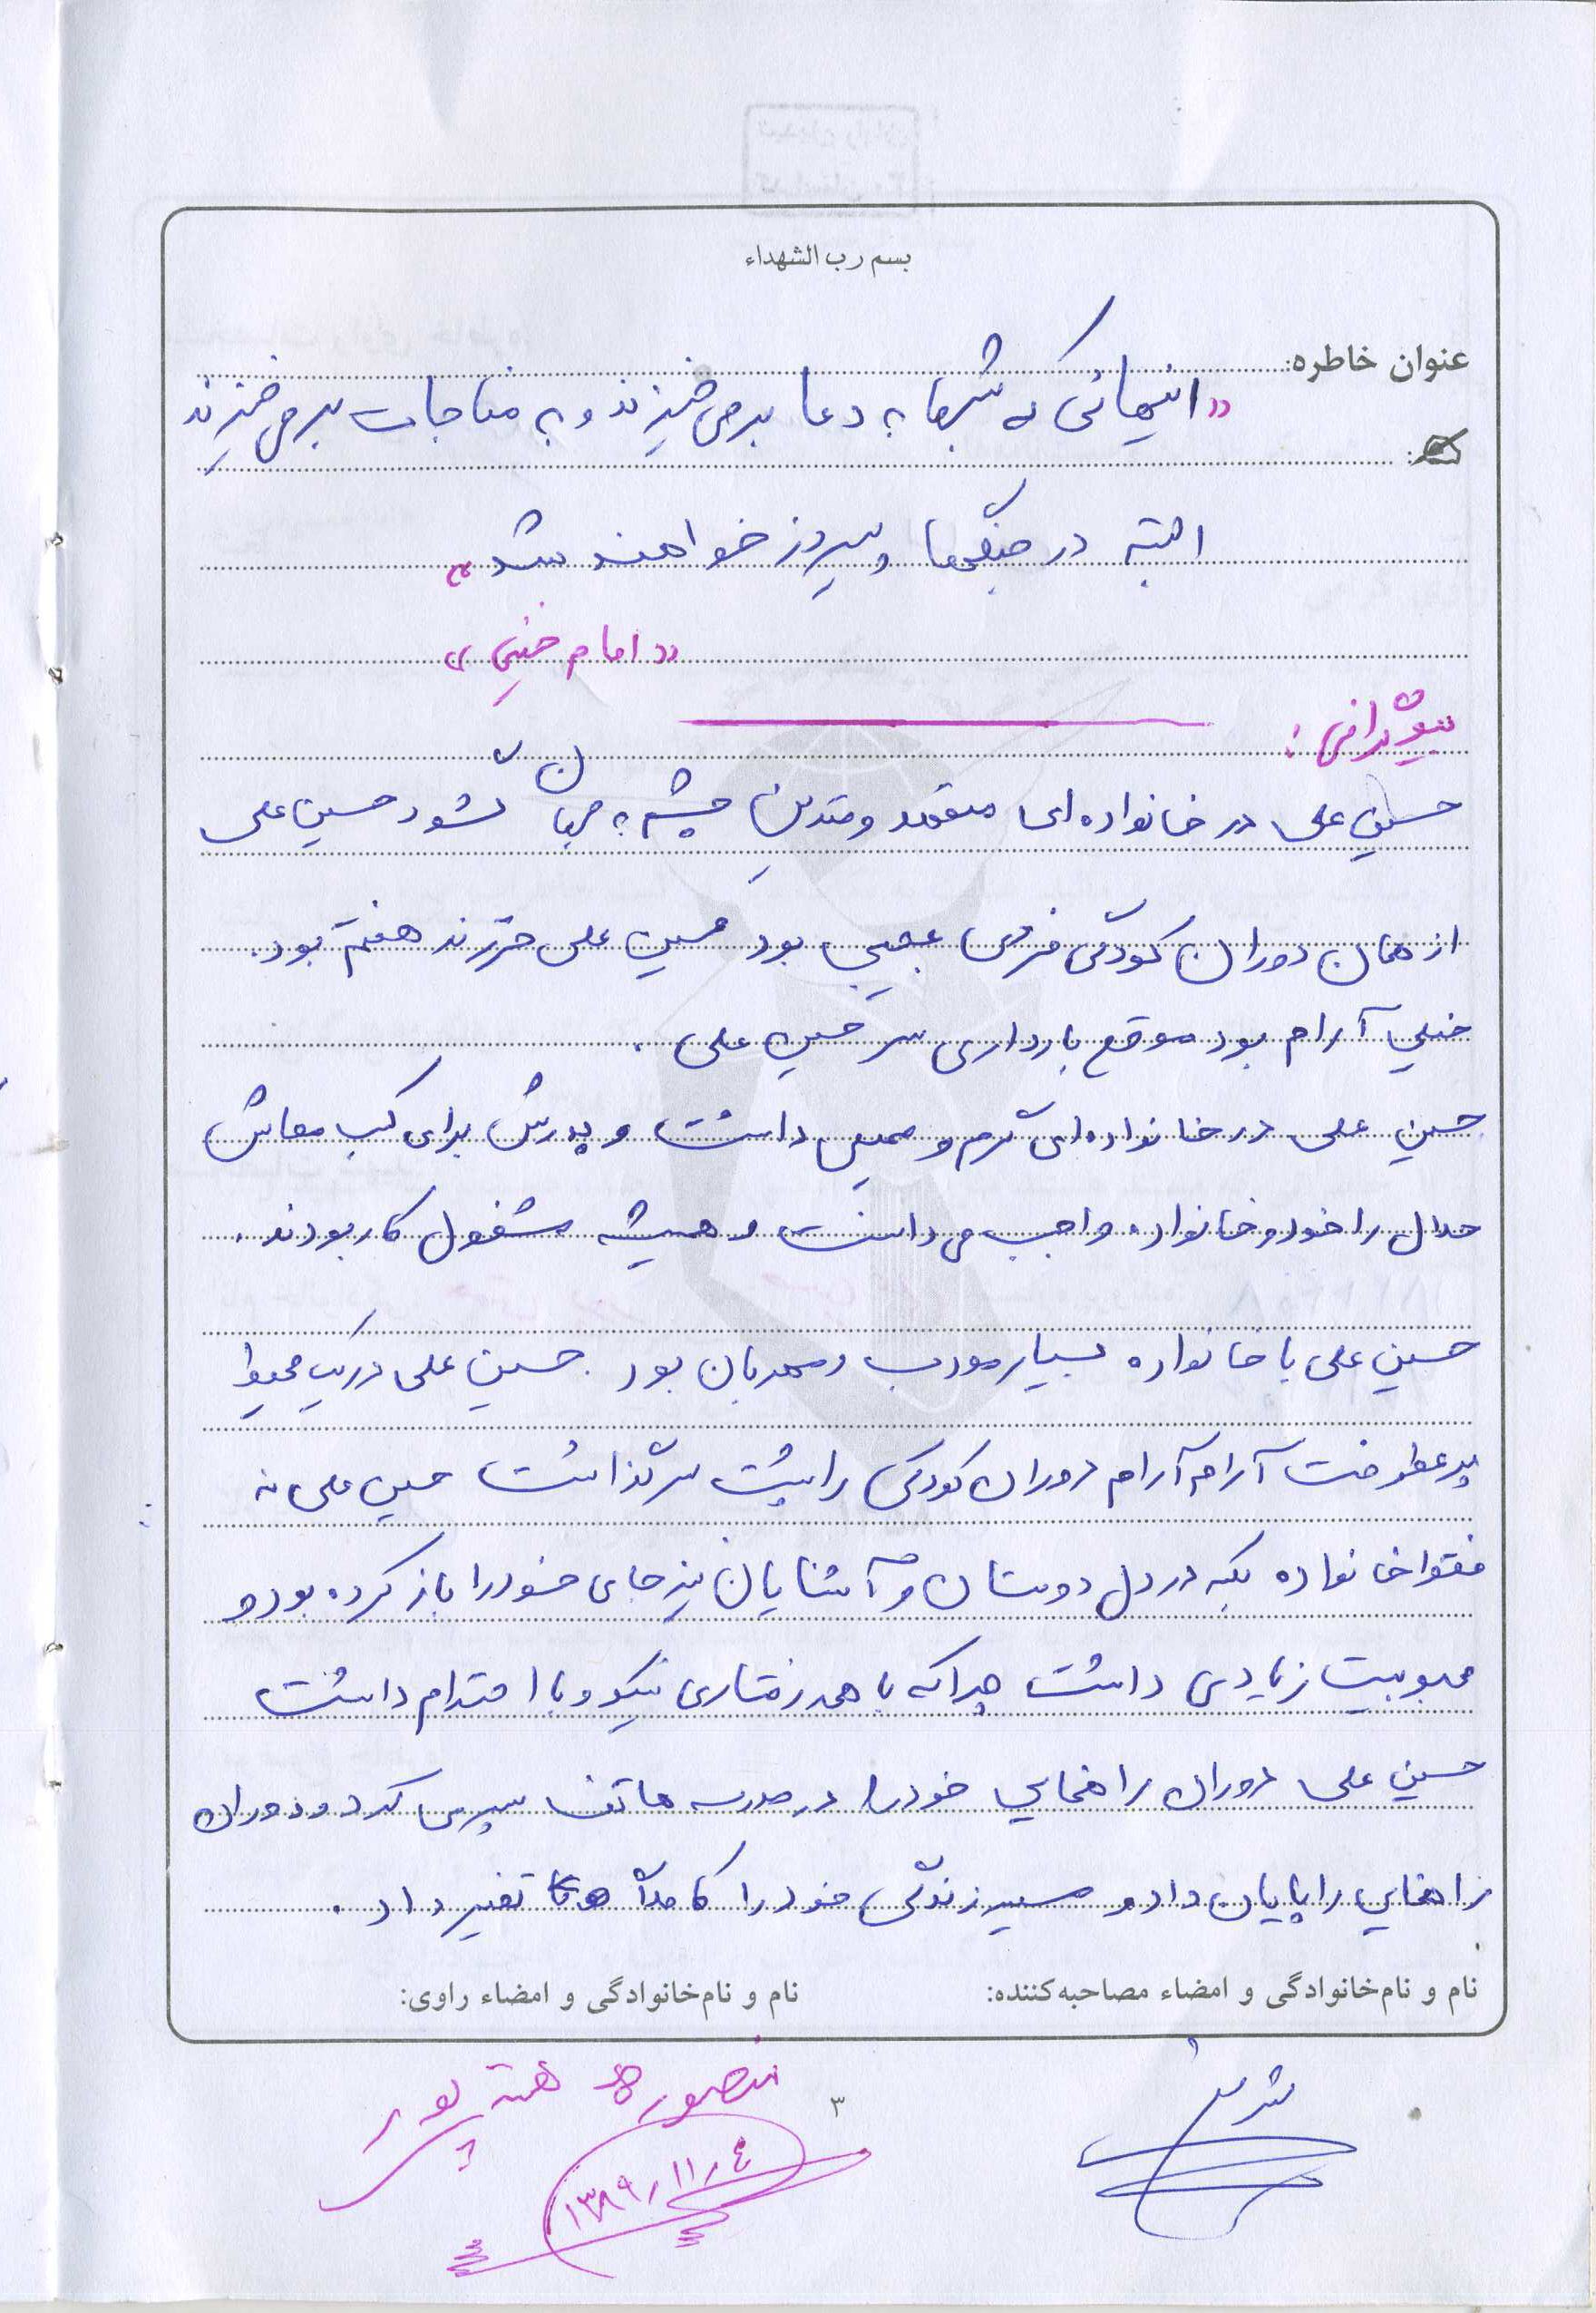 بسم رب الشهداء
عنوان خاطره:
«اینهائی که شبها به دعا برمی خیزند و به مناجات برمی خیزند
البته در جنگها پیروز خواهند شد»
«امام خمینی»
بیوگرافی:
حسین علی در خانواده ای متعهد و متدین چشم به جهان گشود حسین علی
از همان دوران کودکی فردی عجیبی بود حسین علی فرزند هفتم بود.
خیلی آرام بود موقع بارداری سر حسین علی.
حسین علی در خانواده ای گرم و صمیمی داشت و پدرش برای کسب معاش
حلال را خود و خانواده واجب می دانست و همیشه مشغول کار بودند.
حسین علی با خانواده بسیار مودب و مهربان بود. حسین علی در یک محیط
پر عطوفت آرام آرام دوران کودکی را پشت سر گذاشت حسین علی نه
فقط خانواده بلکه در دل دوستان و آشنایان نیز جای خود را باز کرده بود و
محبوبیت زیادی داشت چرا که با همه رفتاری نیکو و با احترام داشت
حسین علی دوران راهنمایی خود را در مدرسه هاتف سپری کرد و دوران
راهنمایی را پایان داد و مسیر زندگی خود را کاملاً تغییر داد.
نام و نام‌خانوادگی و امضاء مصاحبه‌کننده:
نام و نام‌خانوادگی و امضاء راوی:
منصوره
۱۳۸۹/۱۱/۴
۳